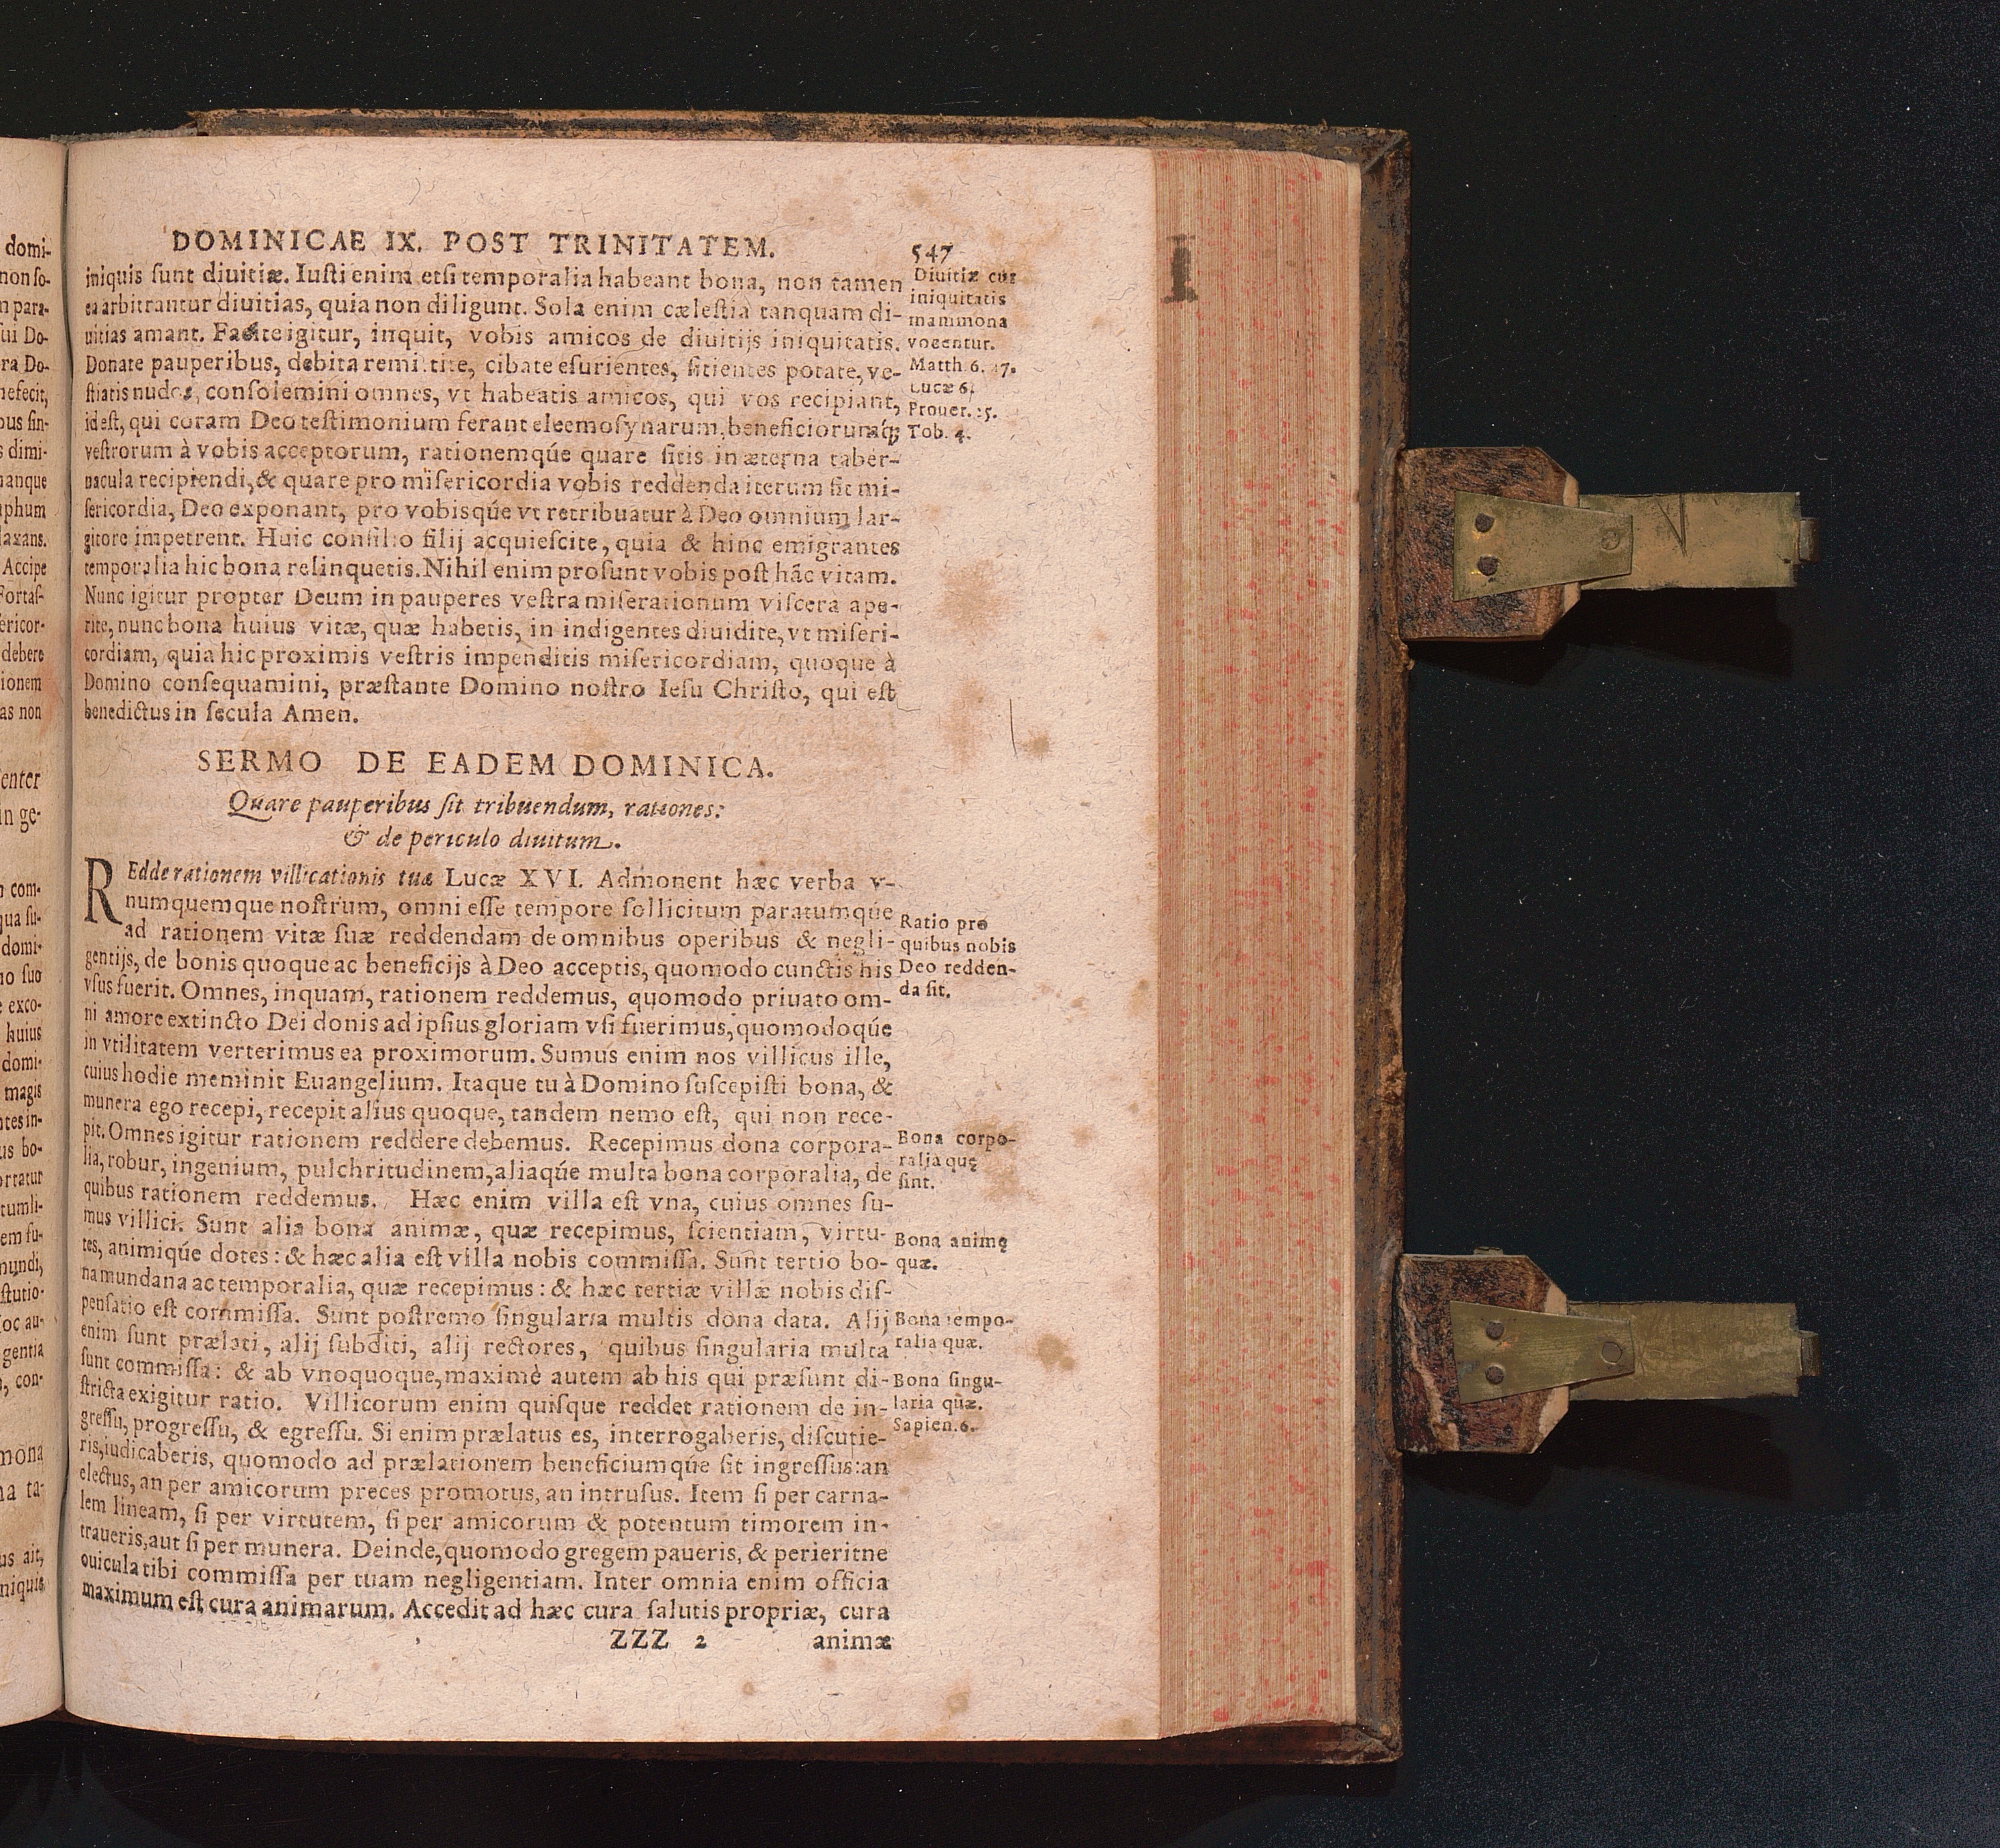 DOMINICAE IX. POST TRINITATEM. 547
iniquis sunt diuitiæ. Iusti enim etsi temporalia habeant bona, non tamen
ea arbitrantur diuitias, quia non diligunt. Sola enim cælestia tanquam di-
uitias amant. Facite igitur, inquit, vobis amicos de diuitijs iniquitatis.
Donate pauperibus, debita remittite, cibate esurientes, sitientes potate, ve-
stiatis nudos, consolemini omnes, vt habeatis amicos, qui vos recipiant,
id est, qui coram Deo testimonium ferant eleemosynarum, beneficiorumq́;
vestrorum à vobis acceptorum, rationemqúe quare sitis in æterna taber-
nacula recipiendi, & quare pro misericordia vobis reddenda iterum sit mi-
sericordia, Deo exponant, pro vobisqúe vt retribuatur à Deo omnium lar-
gitore impetrent. Huic consilio filij acquiescite, quia & hinc emigrantes
temporalia hic bona relinquetis. Nihil enim prosunt vobis post hãc vitam.
Nunc igitur propter Deum in pauperes vestra miserationum viscera ape-
rite, nunc bona huius vitæ, quæ habetis, in indigentes diuidite, vt miseri-
cordiam, quia hic proximis vestris impenditis misericordiam, quoque à
Domino consequamini, præstante Domino nostro Iesu Christo, qui est
benedictus in secula Amen.
Diuitiæ cur
iniquitatis
mammona
vocentur.
Matth. 6. 
Lucæ 6.
Prouer. 
Tob. 4.
SERMO DE EADEM DOMINICA.
Quare pauperibus sit tribuendum, rationes:
& de periculo diuitum.
REdde rationem villicationis tuæ Lucæ XVI. Admonent hæc verba v-
numquemque nostrum, omni esse tempore sollicitum paratumqúe
ad rationem vitæ suæ reddendam de omnibus operibus & negli-
gentijs, de bonis quoque ac beneficijs à Deo acceptis, quomodo cunctis his
vsus fuerit. Omnes, inquam, rationem reddemus, quomodo priuato om-
ni amore extincto Dei donis ad ipsius gloriam vsi fuerimus, quomodoqúe
in vtilitatem verterimus ea proximorum. Sumus enim nos villicus ille,
cuius hodie meminit Euangelium. Itaque tu à Domino suscepisti bona, &
munera ego recepi, recepit alius quoque, tandem nemo est, qui non rece-
pit. Omnes igitur rationem reddere debemus. Recepimus dona corpora-
lia, robur, ingenium, pulchritudinem, aliaqúe multa bona corporalia, de
quibus rationem reddemus. Hæc enim villa est vna, cuius omnes su-
mus villici. Sunt alia bona animæ, quæ recepimus, scientiam, virtu-
tes, animiqúe dotes: & hæc alia est villa nobis commissa. Sunt tertio bo-
na mundana ac temporalia, quæ recepimus: & hæc tertiæ villæ nobis dis-
pensatio est commissa. Sunt postremo singularia multis dona data. Alij
enim sunt prælati, alij subditi, alij rectores, quibus singularia multa
sunt commissa: & ab vnoquoque, maximè autem ab his qui præsunt di-
stricta exigitur ratio. Villicorum enim quisque reddet rationem de in-
gressu, progressu, & egressu. Si enim prælatus es, interrogaberis, discutie-
ris, iudicaberis, quomodo ad prælationem beneficiumqúe sit ingressus: an
electus, an per amicorum preces promotus, an intrusus. Item si per carna-
lem lineam, si per virtutem, si per amicorum & potentum timorem in-
traueris, aut si per munera. Deinde, quomodo gregem paueris, & perieritne
ouicula tibi commissa per tuam negligentiam. Inter omnia enim officia
maximum est cura animarum. Accedit ad hæc cura salutis propriæ, cura
ZZZ 2 animæ
Ratio pro
quibus nobis
Deo redden-
da sit.
Bona corpo-
ralia quę
sint.
Bona animę
quæ.
Bona tempo-
ralia quæ.
Bona singu-
laria quæ.
Sapien. 6.
domi-
non so-
m para-
sui Do-
ra Do-
nefecit,
ous sin-
s dimi-
manque
phum
laxans.
Accipe
Fortas-
ericor-
debere
ionem
as non
enter
in ge-
com-
qua su-
domi-
no suo
e exco-
huius
domi-
magis
ntes in-
us bo-
ortatur
tumli-
em su-
mundi,
stutio-
oc au-
gentia
con-
mona
na ta-
us ait,
niquis
I